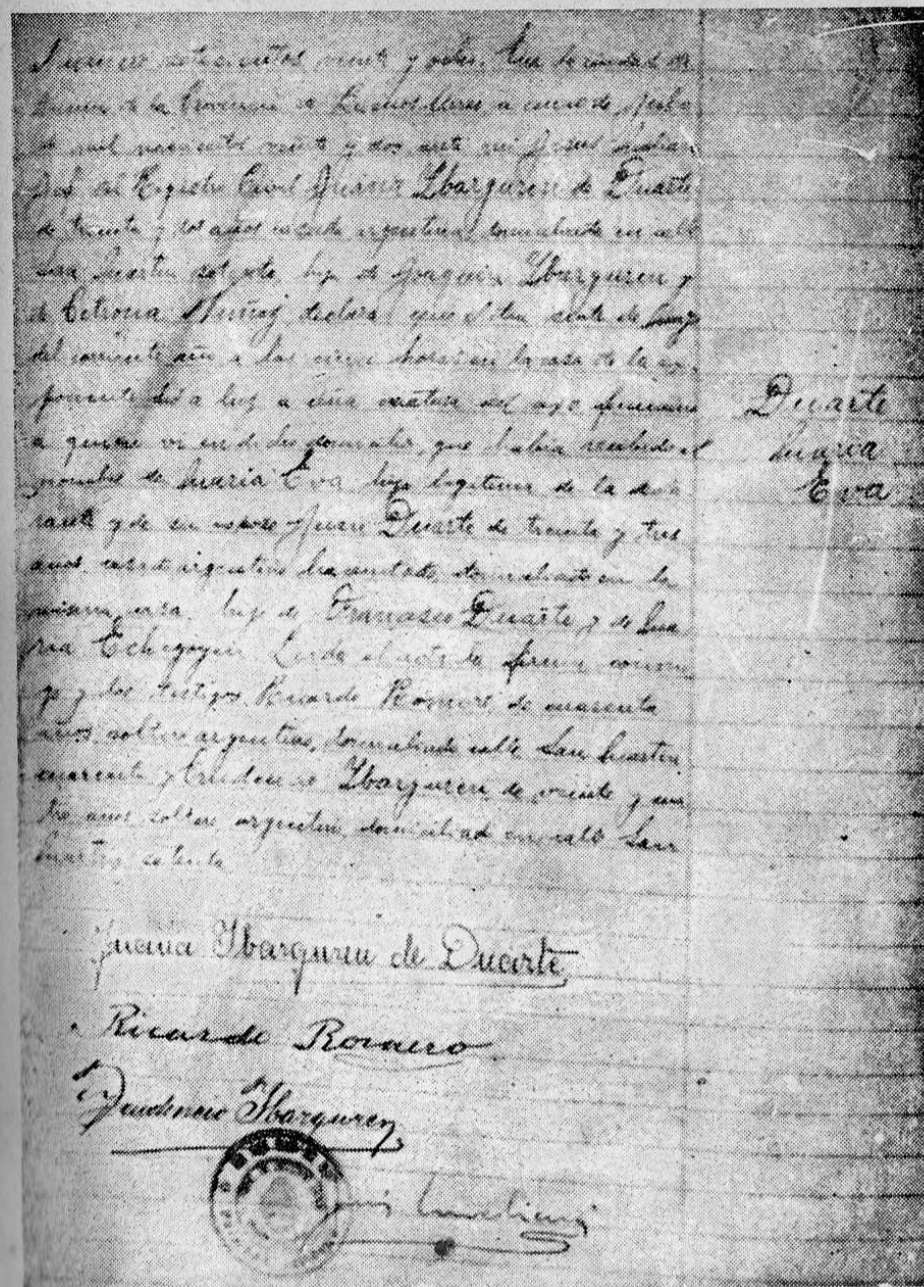 Número setecientos veinte y ocho. En la ciudad de
Junin de la Provincia de Buenos Aires a de Julio
de mil novecientos veinte y dos, ante mi
Jefe del Registro Civil Juana Ybarguren de Duarte
de treinta y dos años casada argentina, domiciliada en calle
San Martin setenta, hija de Joaquin Ybarguren y
de Petrona Muñoz declaró que el dia siete de
del corriente año a las cinco horas en la casa de la ex-
ponente dió a luz a una criatura del sexo femenino
a quien vi en dicho domicilio, que habia recibido el
nombre de Maria Eva hija legitima de la decla
rante y de su esposo Juan Duarte de treinta y tres
años, casado argentino hacendado, domiciliado en la
misma casa, hijo de Francisco Duarte, y de Ma
ria Echegoyen Leida el acta la firmó conmi
go y los testigos Ricardo Romero de cuarenta
años, soltero argentino, domiciliado calle San Martin
cuarenta y Prudencio Ybarguren de veinte y cua
tro años soltero argentino domiciliado en calle San
Martin setenta
Duarte
Maria
Eva
Juana Ybarguren de Duarte
Ricardo Romero
Prudencio Ybarguren